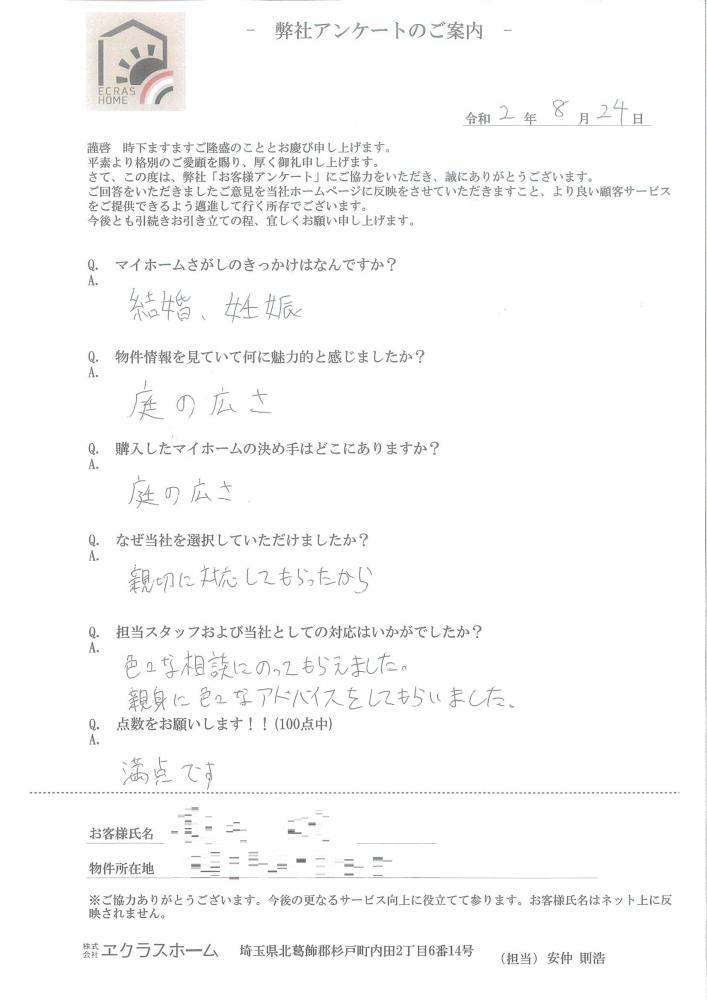 ECRAS
HOME
- 弊社アンケートのご案内 -
令和 2 年 8 月 24 日
謹啓　時下ますますご隆盛のこととお慶び申し上げます。
平素より格別のご愛顧を賜り、厚く御礼申し上げます。
さて、この度は、弊社「お客様アンケート」にご協力をいただき、誠にありがとうございます。
ご回答をいただきましたご意見を当社ホームページに反映をさせていただきますこと、より良い顧客サービス
をご提供できるよう邁進して行く所存でございます。
今後とも引続きお引き立ての程、宜しくお願い申し上げます。
Q.　マイホームさがしのきっかけはなんですか？
A.
結婚、妊娠
Q.　物件情報を見ていて何に魅力的と感じましたか？
A.
庭の広さ
Q.　購入したマイホームの決め手はどこにありますか？
A.
庭の広さ
Q.　なぜ当社を選択していただけましたか？
A.
親切に対応してもらったから
Q.　担当スタッフおよび当社としての対応はいかがでしたか？
A.
色々な相談にのってもらえました。
親身に色々なアドバイスをしてもらいました。
Q.　点数をお願いします！！(100点中)
A.
満点です
お客様氏名
物件所在地
※ご協力ありがとうございます。今後の更なるサービス向上に役立てて参ります。お客様氏名はネット上に反
映されません。
株式会社 ヱクラスホーム　埼玉県北葛飾郡杉戸町内田2丁目6番14号　（担当）安仲 則浩